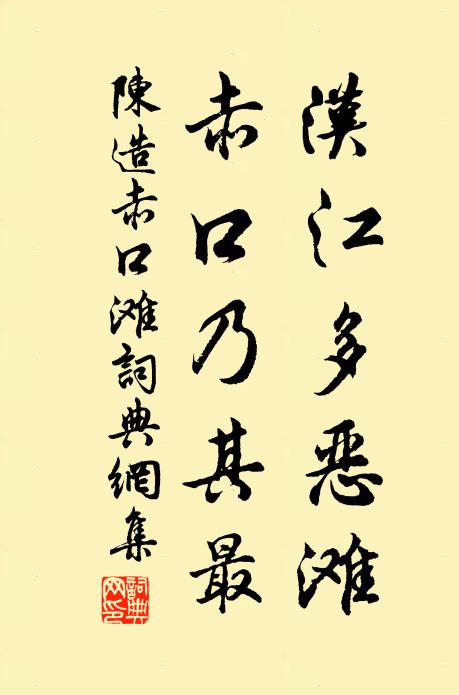 漢江多恶滩
赤口乃其最
陳造赤口滩詞典網集
詞典网印